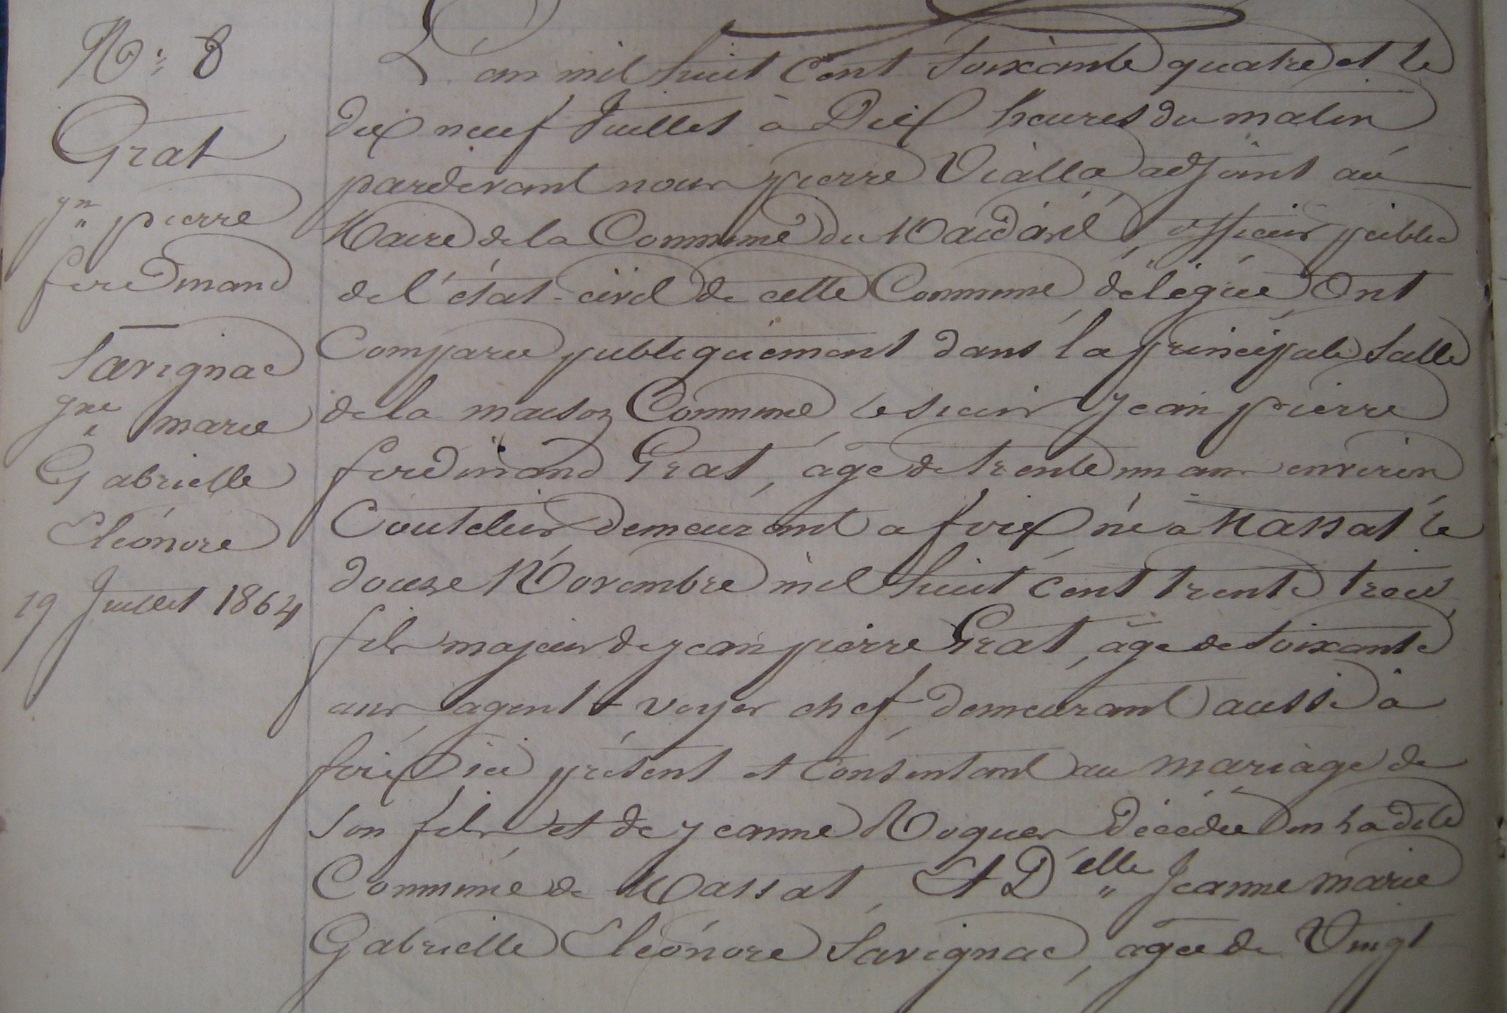 N.° 8
Grat
jn pierre
ferdinand
Savignac
jne marie
Gabrielle
Eléonore
19 Juillet 1864
L'an mil huit Cent Soixante quatre et le
dix neuf Juillet à Dix heures du matin
pardevant nous pierre Vialla adjoint au
Maire de la Commune du officier public
de l'état-civil de cette Commune, délégué, Ont
Comparu publiquement dans la principale Salle
de la maison Commune, le sieur Jean pierre
ferdinand Grat, âgé de trente un ans environ
Coutelier demeurant a foix né a Massat le
douze Novembre mil huit cent trente trois,
fils majeur de jean pierre Grat, âgé de Soixante
ans, agent-voyer chef demeurant aussi à
foix ici présent et consentant au mariage de
Son fils, et de jeanne Roques Décédée en la dite
Commune de Massat, Et Delle Jeanne marie
Gabrielle Eléonore Savignac, agée de Vingt